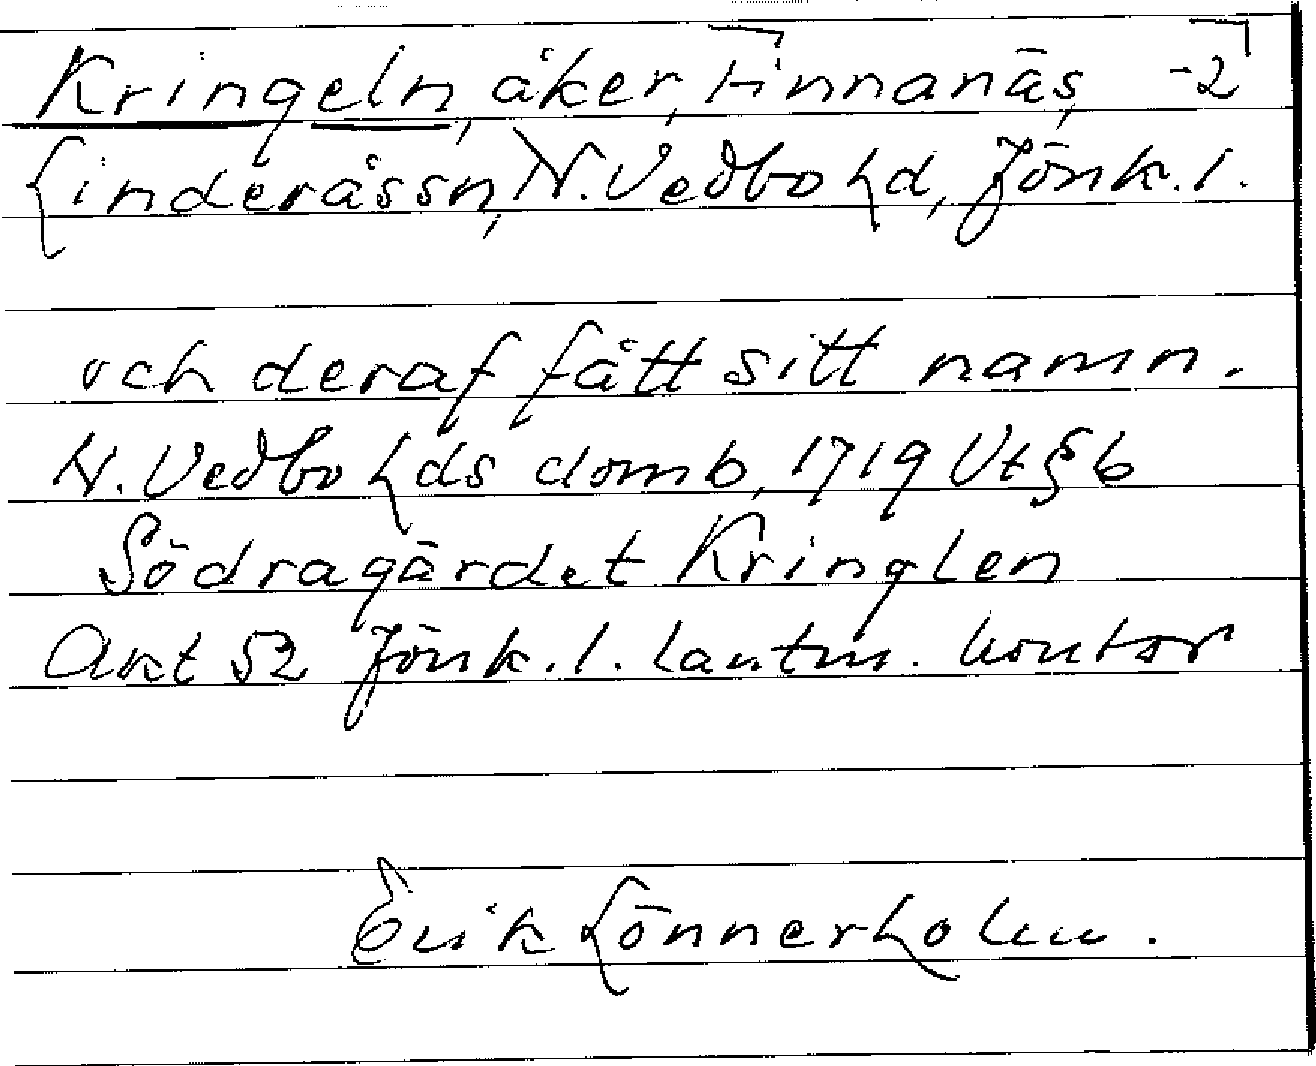 Kringeln, åker, Finnanäs, -2
Linderåssn, N. Vedbo hd, Jönk. l.
och deraf fått sitt namn.
N. Vedbo hds domb, 1719 Vt § 6
Södragärdet Kringlen
Akt 52 Jönk. l. lantm. kontor
Erik Lönnerholm.